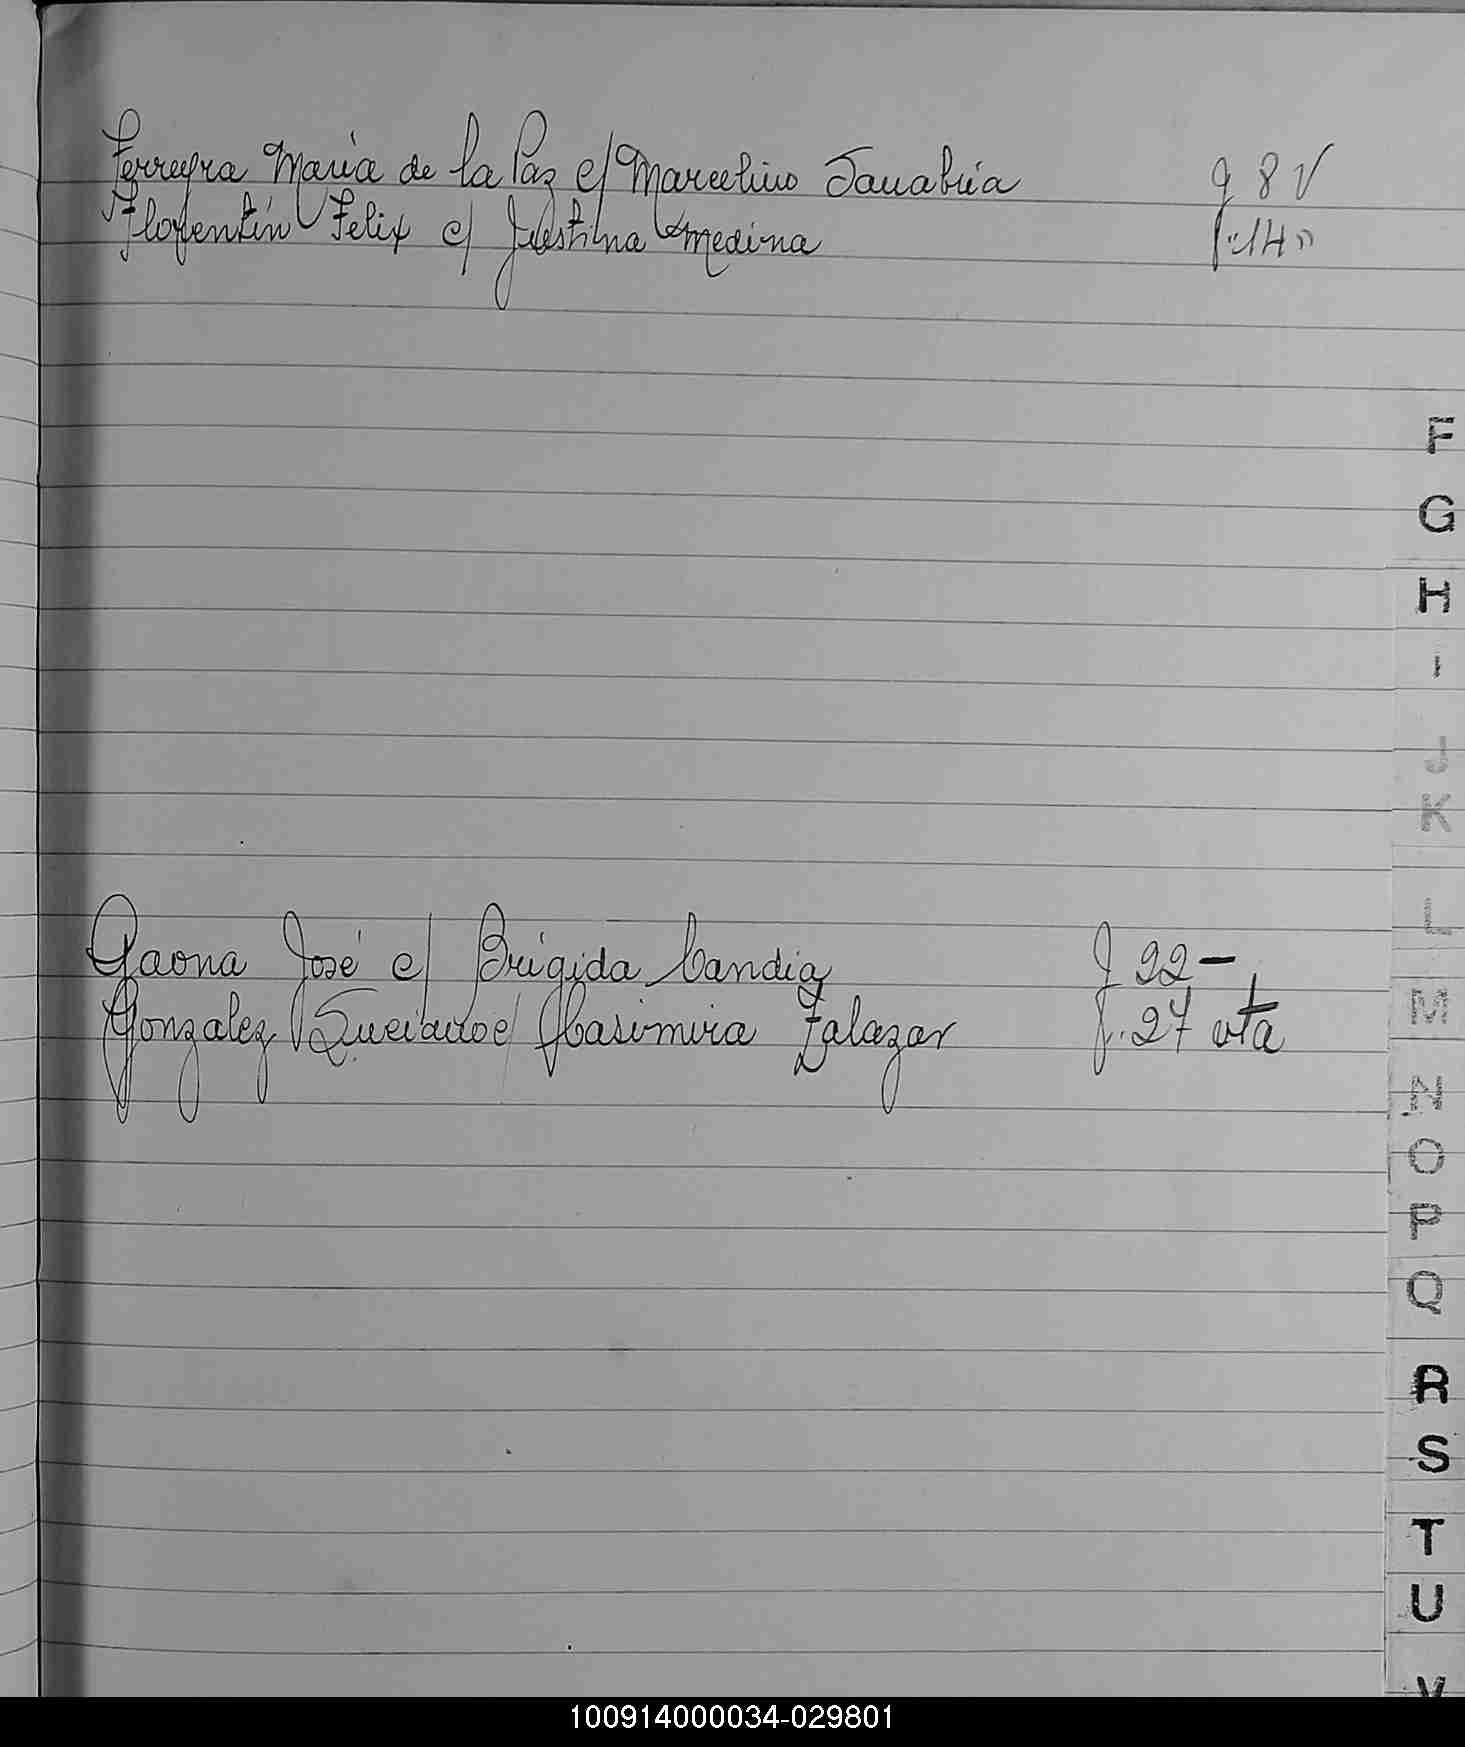 Ferreyra Maria de la Paz c/ Marcelino Sanabria f 8 V
Florentín Felix c/ Justina Medina f. "14"
F
G
H
I
J
K
Gaona José c/ Brígida Candia f 22 -
L
Gonzalez c/ Casimira Zalazar f. 27 vta
M
N
O
P
Q
R
S
T
U
V
100914000034-029801